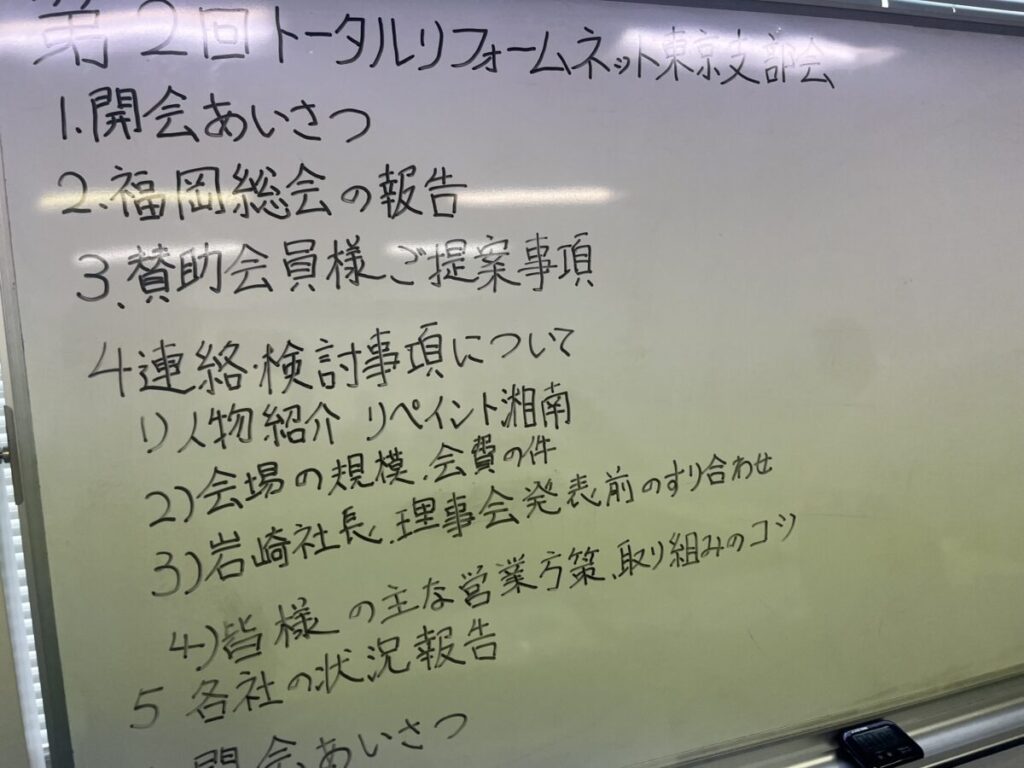 第2回トータルリフォームネット東京支部会
1.開会あいさつ
2.福岡総会の報告
3.賛助会員様ご提案事項
4連絡・検討事項について
1)人物紹介 リペイント湘南
2)会場の規模.会費の件
3)岩崎社長.理事会発表前のすり合わせ
4)皆様の主な営業方策.取り組みのコツ
5 各社の状況報告
会あいさつ